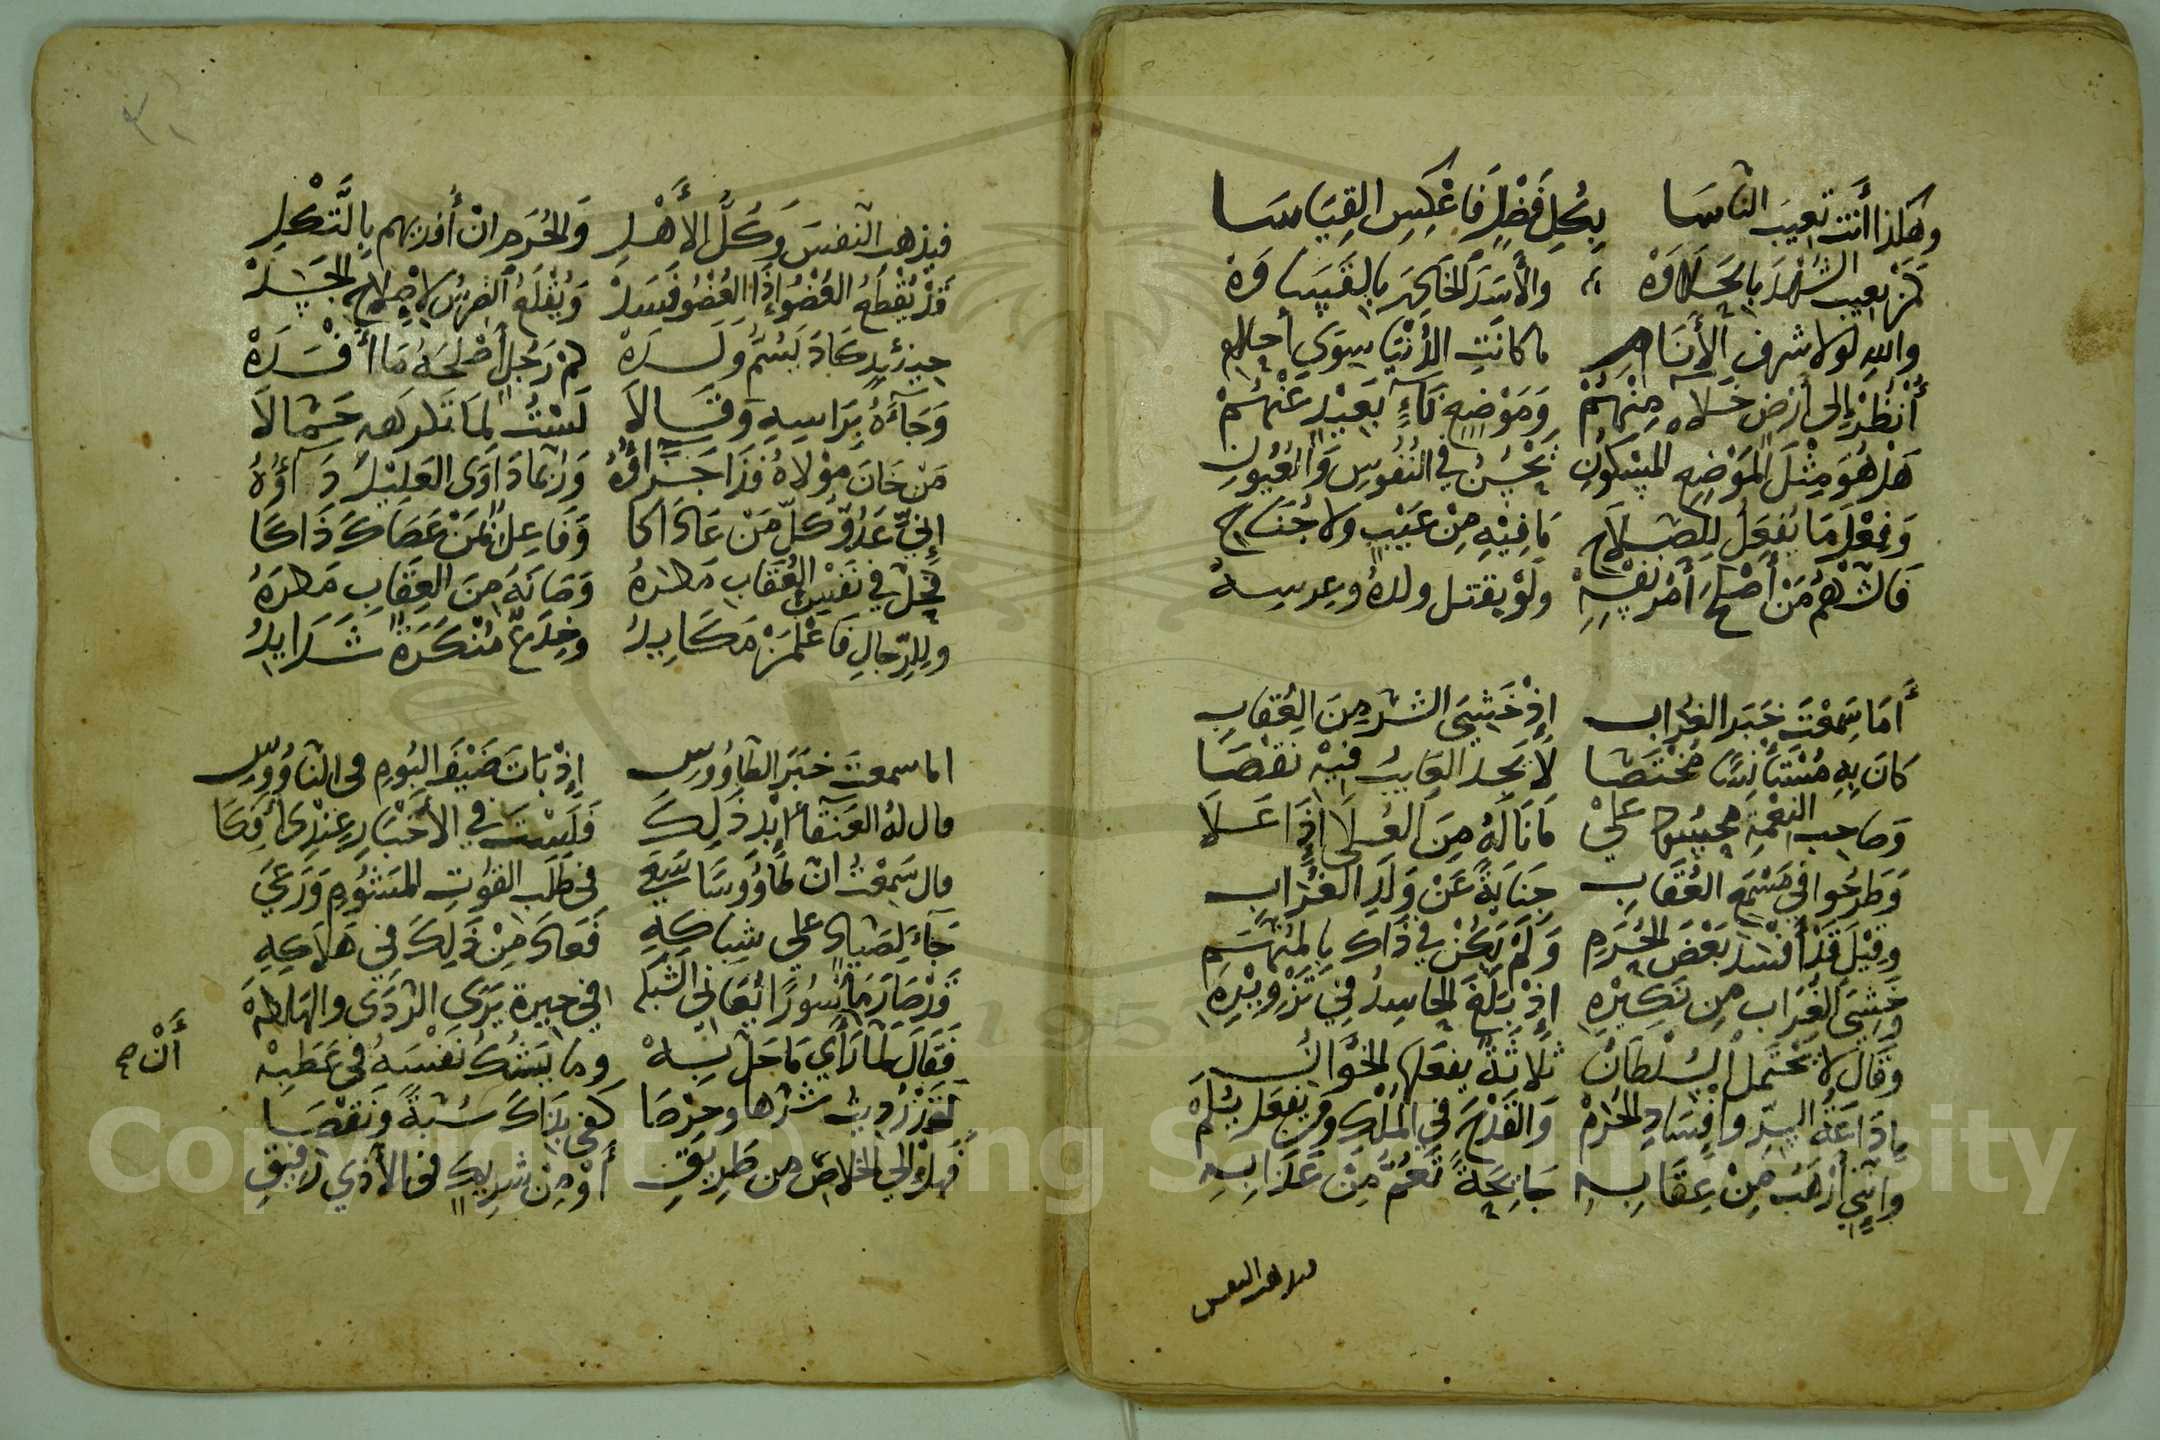 وهكذا أنت تعيب الناسا بكل فضل فاعكس القياسا
كمن يعيب الشهد بالحلاوة والأسد الخادر بالقساوة
والله لولا شرف الأنام ما كانت الدنيا سوى أحلام
أنظر إلى أرض خلاء منهم وموضع ناء بعيد عنهم
هل هو مثل الموضع المسكون يحسن في النفوس والعيون
وفعل ما يفعل للصلاح ما فيه من عيب ولا جناح
فالشهم من أصلح أمر نفسه ولو بقتل ولده وعرسه
أما سمعت خبر الغراب إذ خشي الشر من العقاب
كان به مستأنسا مختصا لا يجد العايب فيه نقصا
وصاحب النعمة محسود على ما ناله من العلا إذا علا
وطرحوا في مسمع العقاب جناية عن ولد الغراب
وقيل قد أفسد بعض الحرم ولم يكن في ذاك بالمتهم
وخشي الغراب من نكيره إذ بلغ الحاسد في تزويره
وقال لا يحتمل السلطان ثلاثة يفعلها الخوان
إذاعة السر وإفساد الحرم والقدح في الملك ومن يفعل يلم
وإنني أرهب من عقابه جايحة تعم من عذابه
فيذهب النفس
فيذهب النفس وكل الأهل والحزم ان أفديهم بالثكل
قد يقطع العضو إذا العضو فسد ويقلع الضرس لإصلاح الجسد
حينئذ كاد بسم ولده كم رجل أصلحه ما أفسده
وجاءه براسه وقالا لست لما تكرهه حمالا
من خان مولاه فذا جزاؤه وربما داوى العليل داؤه
إني عدو كل من عاداكا وفاعل بمن عصاك ذاكا
فجل في نفس العقاب مكره وصانه من العقاب مكره
وللرجال فاعلمن مكايد وخدع منكرة شدايد
اما سمعت خبر الطاووس إذ بات ضيف البوم في الناووس
قال له العنقا أبد ذلك فلست في الأخبار عندي أفكا
قال سمعت ان طاووسا سعى في طلب القوت المشوم ورعى
جاء لصياد على شباكه فعاد من ذلك في هلاكه
قد صار مأسورا يعاني الشبكه في حيرة يرى الردى والهلكه
فقال لما رأى ما حل به وما يشك نفسه في عطبه
لقد رديت شرها وحرصا كفى بذاك سبة ونقصا
فهل إلى الخلاص من طريق أو من شريك في الأذى رفيق
أن صح
Copyright © King Saud University
1957